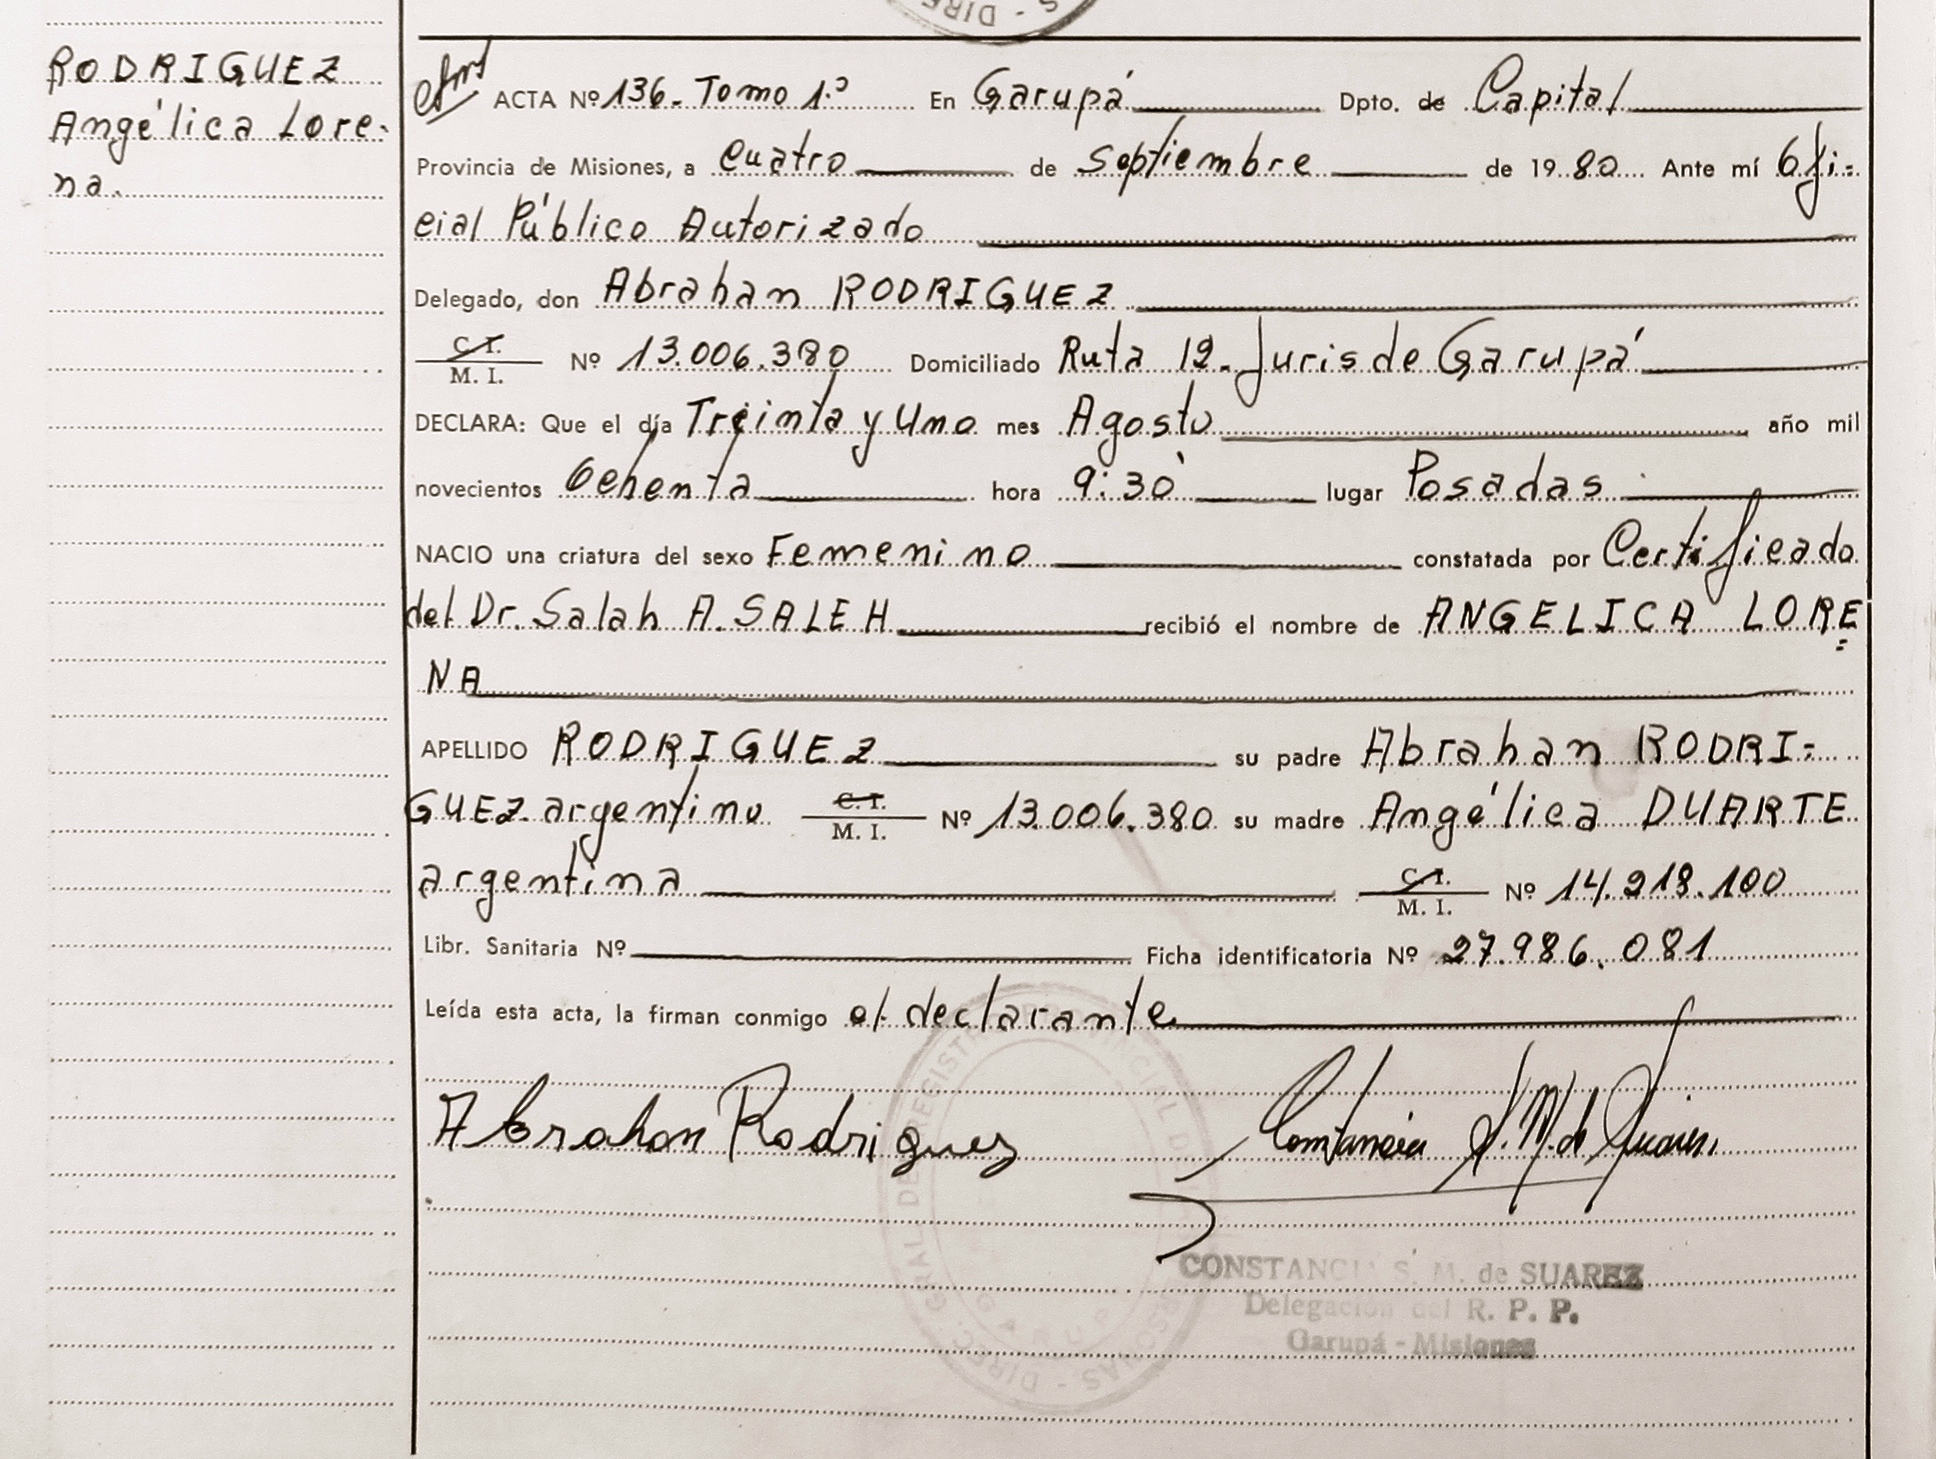 S - DIREC
RODRIGUEZ
Angélica Lore-
na.
ACTA Nº 136. Tomo 1.º En Garupá Dpto. de Capital
Provincia de Misiones, a Cuatro de Septiembre de 1980. Ante mí Ofi=
cial Público Autorizado
Delegado, don Abrahan RODRIGUEZ
C. I.
M. I. Nº 13.006.380 Domiciliado Ruta 12. Juris de Garupá
DECLARA: Que el día Treinta y Uno mes Agosto año mil
novecientos Ochenta hora 9:30 lugar Posadas
NACIO una criatura del sexo Femenino constatada por Certificado
del Dr. Salah A. SALEH recibió el nombre de ANGELICA LORE=
NA
APELLIDO RODRIGUEZ su padre Abrahan RODRI=
GUEZ. argentino C. I. M. I. Nº 13.006.380 su madre Angélica DUARTE
argentina C. I. M. I. Nº 14.218.100
Libr. Sanitaria Nº Ficha identificatoria Nº 27.986.081
Leída esta acta, la firman conmigo el declarante
Abrahan Rodriguez Constancia S. M. de Suarez
CONSTANCIA S. M. de SUAREZ
Delegación del R. P. P.
Garupá - Misiones